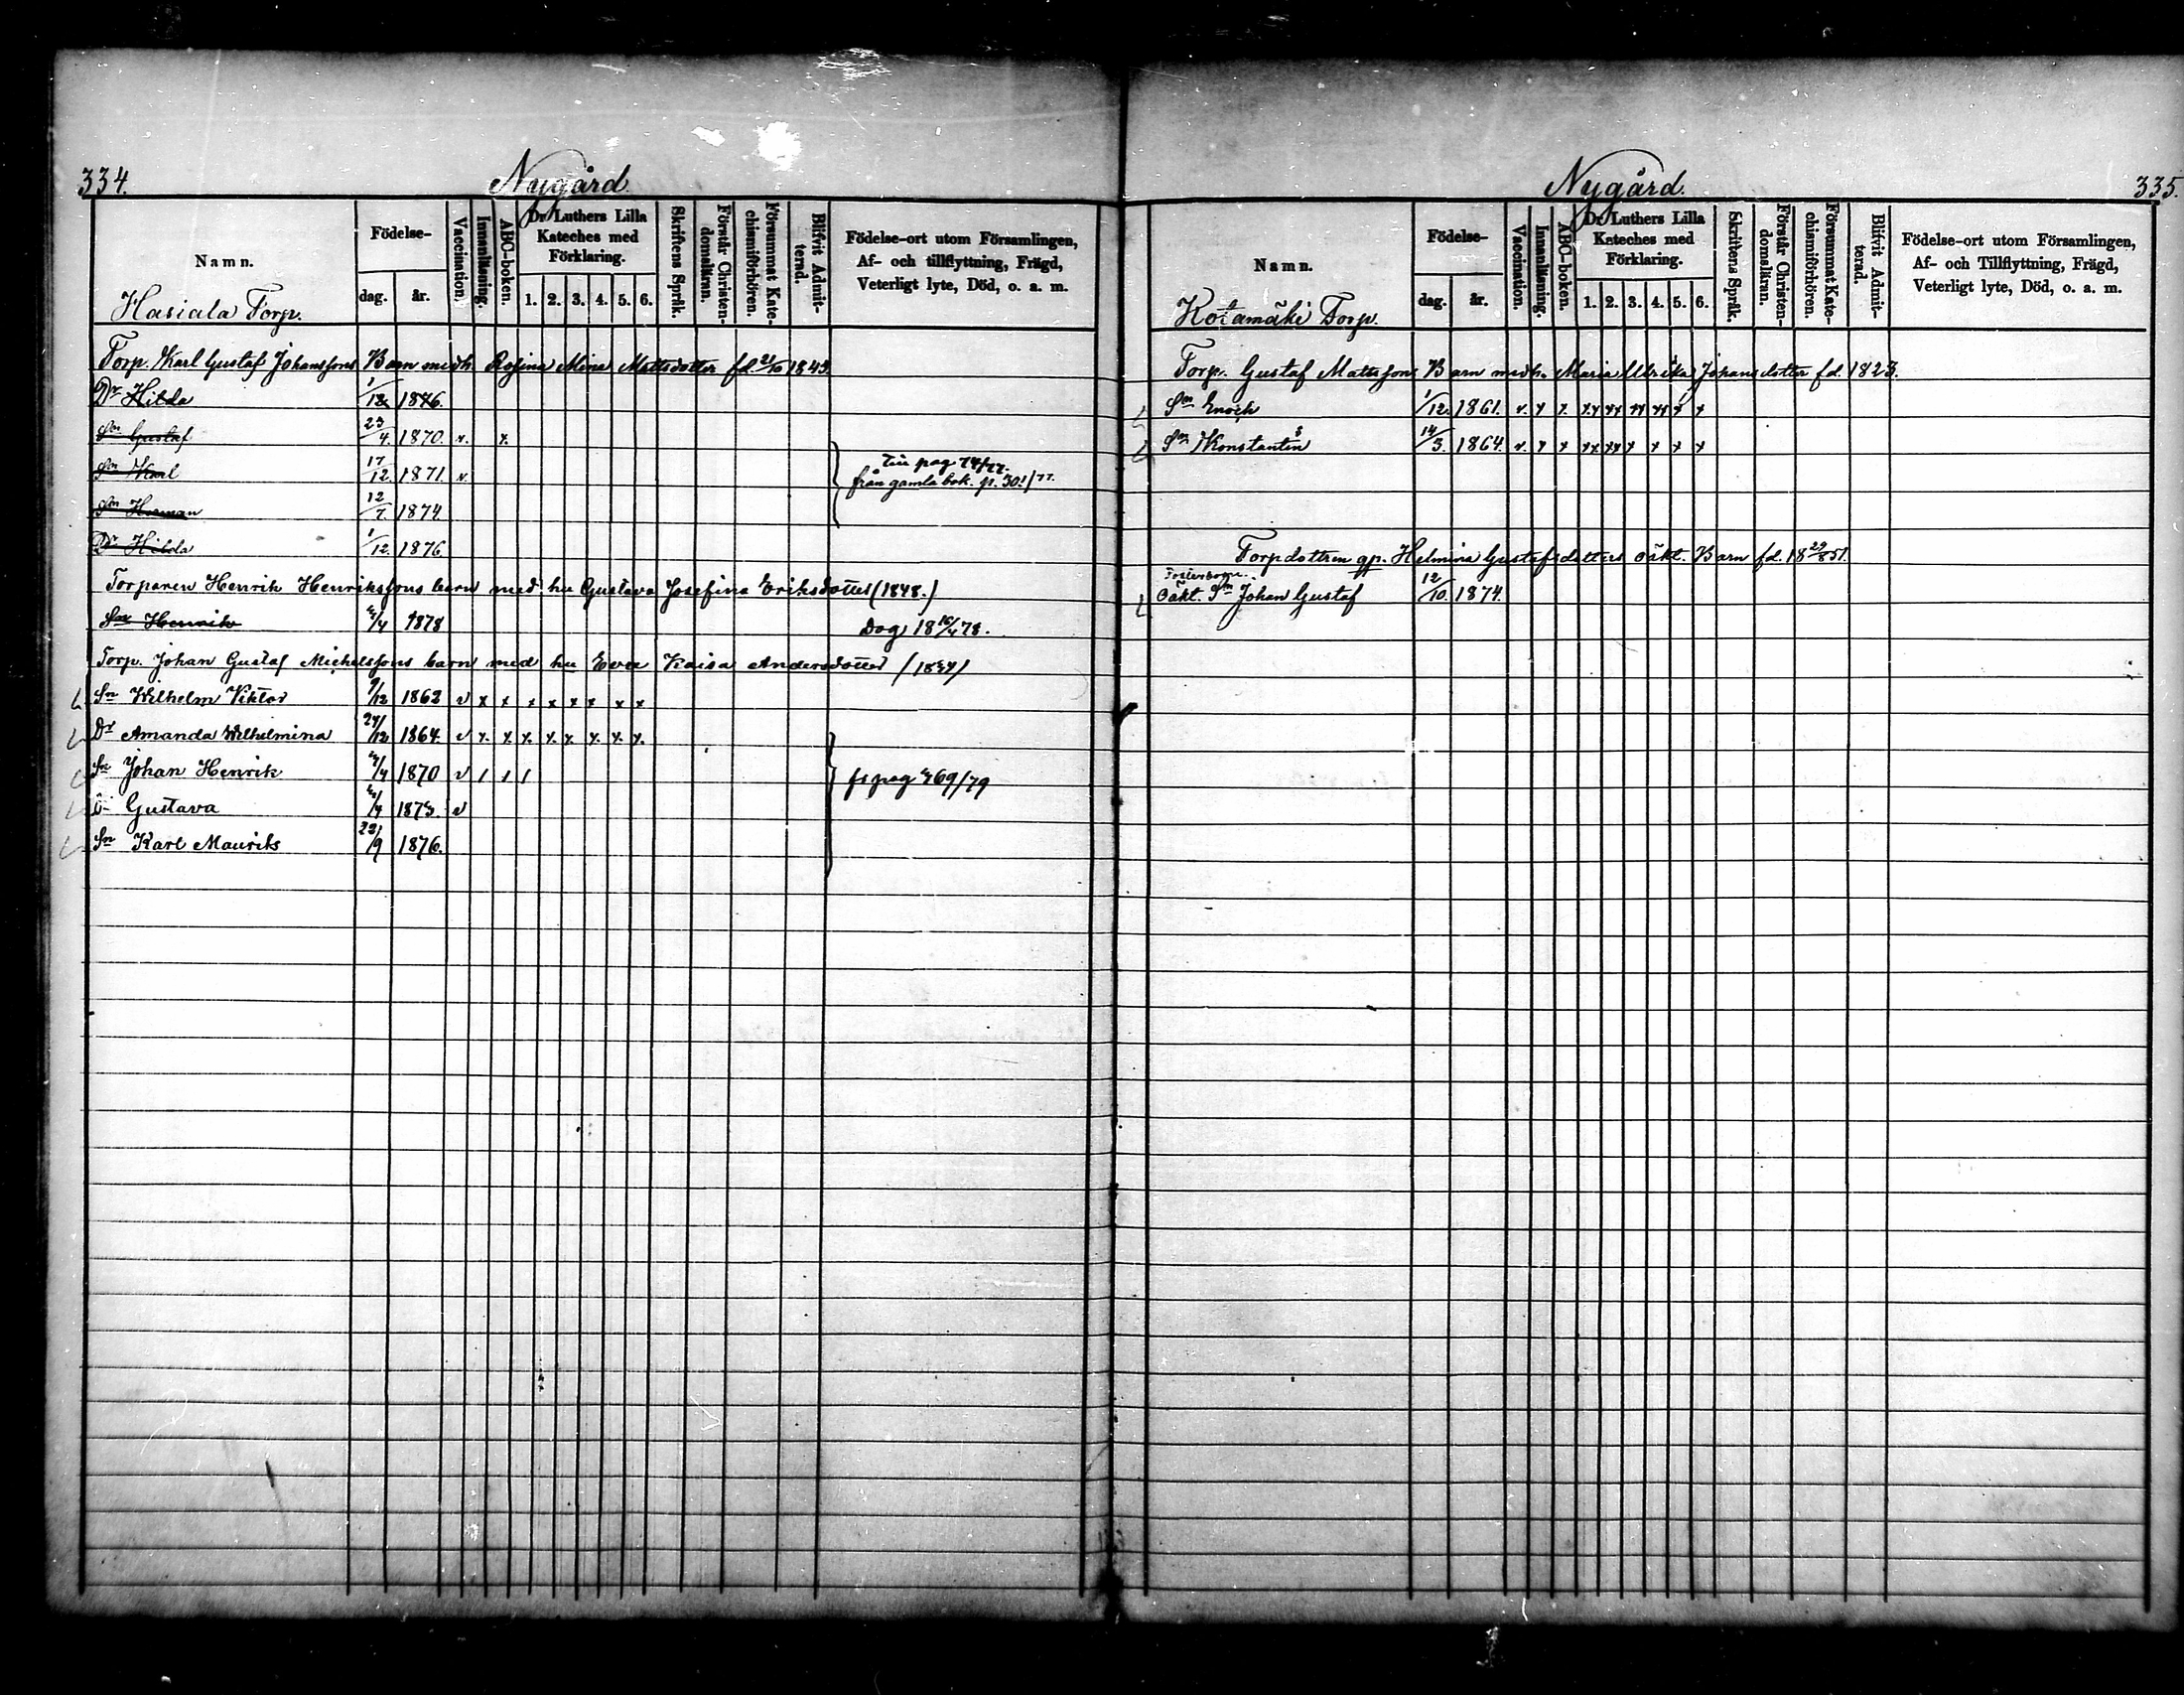 334.
Nygård.
Namn.
Födelse-
dag. år.
Vaccination.
Innanläsning.
ABC-boken.
Dr Luthers Lilla Kateches med Förklaring.
1. 2. 3. 4. 5. 6.
Skriftens Språk.
Förstår Christen-domsläran.
Försummat Kate-chismiförhören.
Blifvit Admit-terad.
Födelse-ort utom Församlingen,
Af- och tillflyttning, Frägd,
Veterligt lyte, Död, o. a. m.
Hasiala Torp.
Torp. Karl Gustaf Johanssons Barn med h. Rosina Mina Mattsdotter fd. 21/10 1843
Dr Hilda 1/12 1876.
Sn Gustaf 23/4. 1870. v. x.
Sn Karl 17/12. 1871. v
Till pag 74/77.
från gamla bok. p. 301/77.
Sn Herman 12/7. 1874
Dr Hilda 1/12. 1876
Torparen Henrik Henrikssons barn med hu Gustava Josefina Eriksdotter (1848.)
Sn Henrik /4 1878 Dog 18 16/4 78.
Torp. Johan Gustaf Michelssons barn med hu Eva Kaisa Andersdotter
Sn Wilhelm Viktor 9/12 1862 v x x x x x x x x
Dr Amanda Wilhelmina 24/12 1864. v x. x. x. x. x. x. x. x.
Sn Johan Henrik /4 1870 v / / /
fr pag 269/79
Gustava /4 1873. v
Sn Karl Mauriks 22/9 1876.
335.
Nygård.
Namn.
Födelse-
dag. år.
Vaccination.
Innanläsning.
ABC-boken.
Dr Luthers Lilla Kateches med Förklaring.
1. 2. 3. 4. 5. 6.
Skriftens Språk.
Förstår Christen-domsläran.
Försummat Kate-chismiförhören.
Blifvit Admit-terad.
Födelse-ort utom Församlingen,
Af- och Tillflyttning, Frägd,
Veterligt lyte, Död, o. a. m.
Kotamäki Torp.
Torp. Gustaf Mattssons Barn med h. Maria Ulrika Johansdotter fd. 1823.
Sn Enoch 1/12. 1861. v. x x. xx xx xx xx x x
Sn Konstantin 14/3. 1864. v. x x xx xx x x x x
Torpdottren gp. Helmina Gustafsdotters oäkt. Barn fd. 18 29/8 51.
Fosterson
oäkt. Sn Johan Gustaf 12/10. 1874.